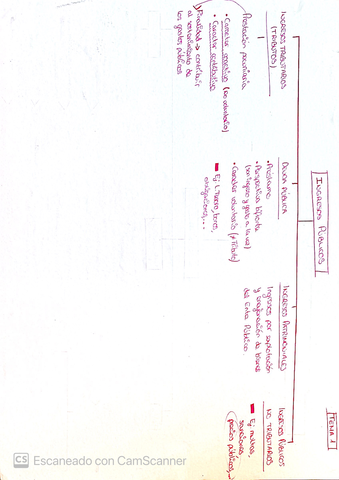 TEMA 1
INGRESOS PÚBLICOS
INGRESOS TRIBUTARIOS
(TRIBUTOS)
Prestación pecuniaria
• Carácter coactivo (no voluntario)
• Carácter contributivo
Finalidad → contribuir
al sostenimiento de
los gastos públicos
DEUDA PÚBLICA
• Préstamo
• Perspectiva bifronte
(son ingreso y gasto a la vez)
• Carácter voluntario (≠ tributo)
Ej: L. Tesoro, bonos,
obligaciones, ...
INGRESOS PATRIMONIALES
Ingresos por explotación
y enajenación de bienes
del Ente Público
INGRESOS PÚBLICOS
NO TRIBUTARIOS
Ej: multas,
sanciones,
precios públicos, ...
CS Escaneado con CamScanner